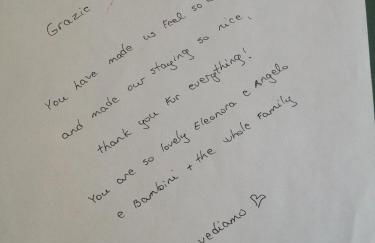 Grazie
You have made us feel so
and made our staying so nice,
thank you for everything!
You are so lovely Eleonora e Angelo
e Bambini + the whole Family
vediamo